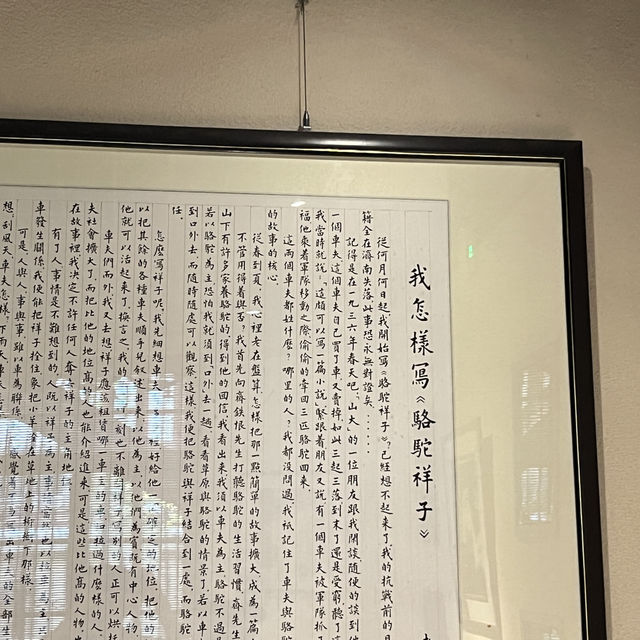 我怎樣寫《駱駝祥子》
從何月何日起我開始寫《駱駝祥子》？已經想不起來了我的抗戰前的日
籍全在濟南失落此事恐永無對證矣......
記得是在一九三六年春天吧，山大的一位朋友跟我閒談隨便的談到他
一個車夫這個車夫自己買了車又賣掉如此三起三落到末了還是受窮聽了這
我當時就說：這頗可以寫一篇小說緊跟着朋友又說有一個車夫被軍隊抓了
福他乘着軍隊移動之際偷偷的牽回三匹駱駝回來
這兩個車夫都姓什麼？哪里的人？我都沒問過我衹記住了車夫與駱駝
的故事的核心
從春到夏，我心裡老在盤算怎樣把那一點簡單的故事擴大成為一篇
不管用得着與否？我首先向齊鉄恨先生打聽駱駝的生活習慣齊先生
山下有許多家養駱駝的得到他的回信我看出來我須以車夫為主駱駝不過是
若以駱駝為主恐怕我就須到口外去一趟看看草原與駱駝的情景了若以車
到口外去而隨時隨處可以觀察這樣我便把駱駝與祥子結合到一處而駱駝
任
怎麼寫祥子呢我先細想車夫 好給他一 確定的地位把他的
以把其餘的各種車夫順手兒敘述出來以他為主以他們為賓既有中心人物
他就可以活起來了換言之我的 刻也不離 祥子寫別的人正可以烘托
車夫們而外我又去想祥子應該租賃哪一車主的車 拉過什麼樣的人
夫社會擴大了而把比他的地位高的人也能介紹進來可是這些比他高的人物也
在故事裡我決定不許任何人奪去祥子的主角地位
有了人事情是不難想到的人既以祥子為主事情當然也以拉車為主
車發生關係我便能把祥子拴住象把小羊拴在草地上的柳樹下那樣
可是人與人，事與事雖以車為聯係 感覺着不
想：刮風天車夫怎樣？下雨天車夫怎樣？ 的全部生